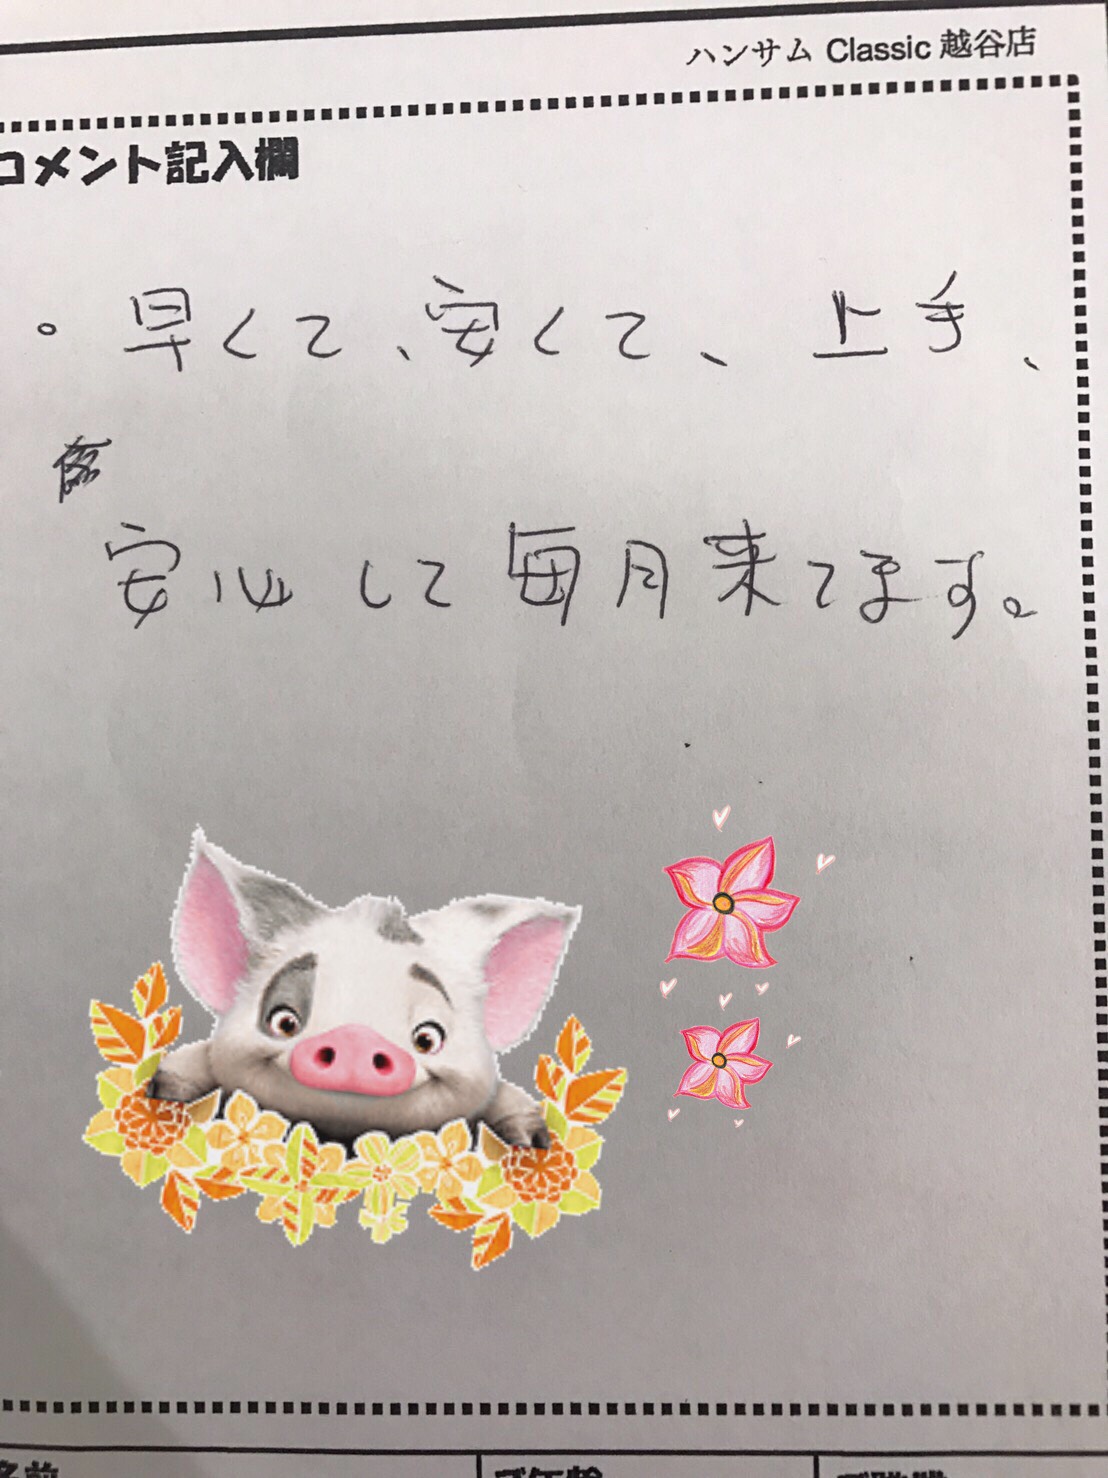 ハンサム Classic 越谷店
コメント記入欄
。早くて、安くて、上手、
安心して毎月来てます。